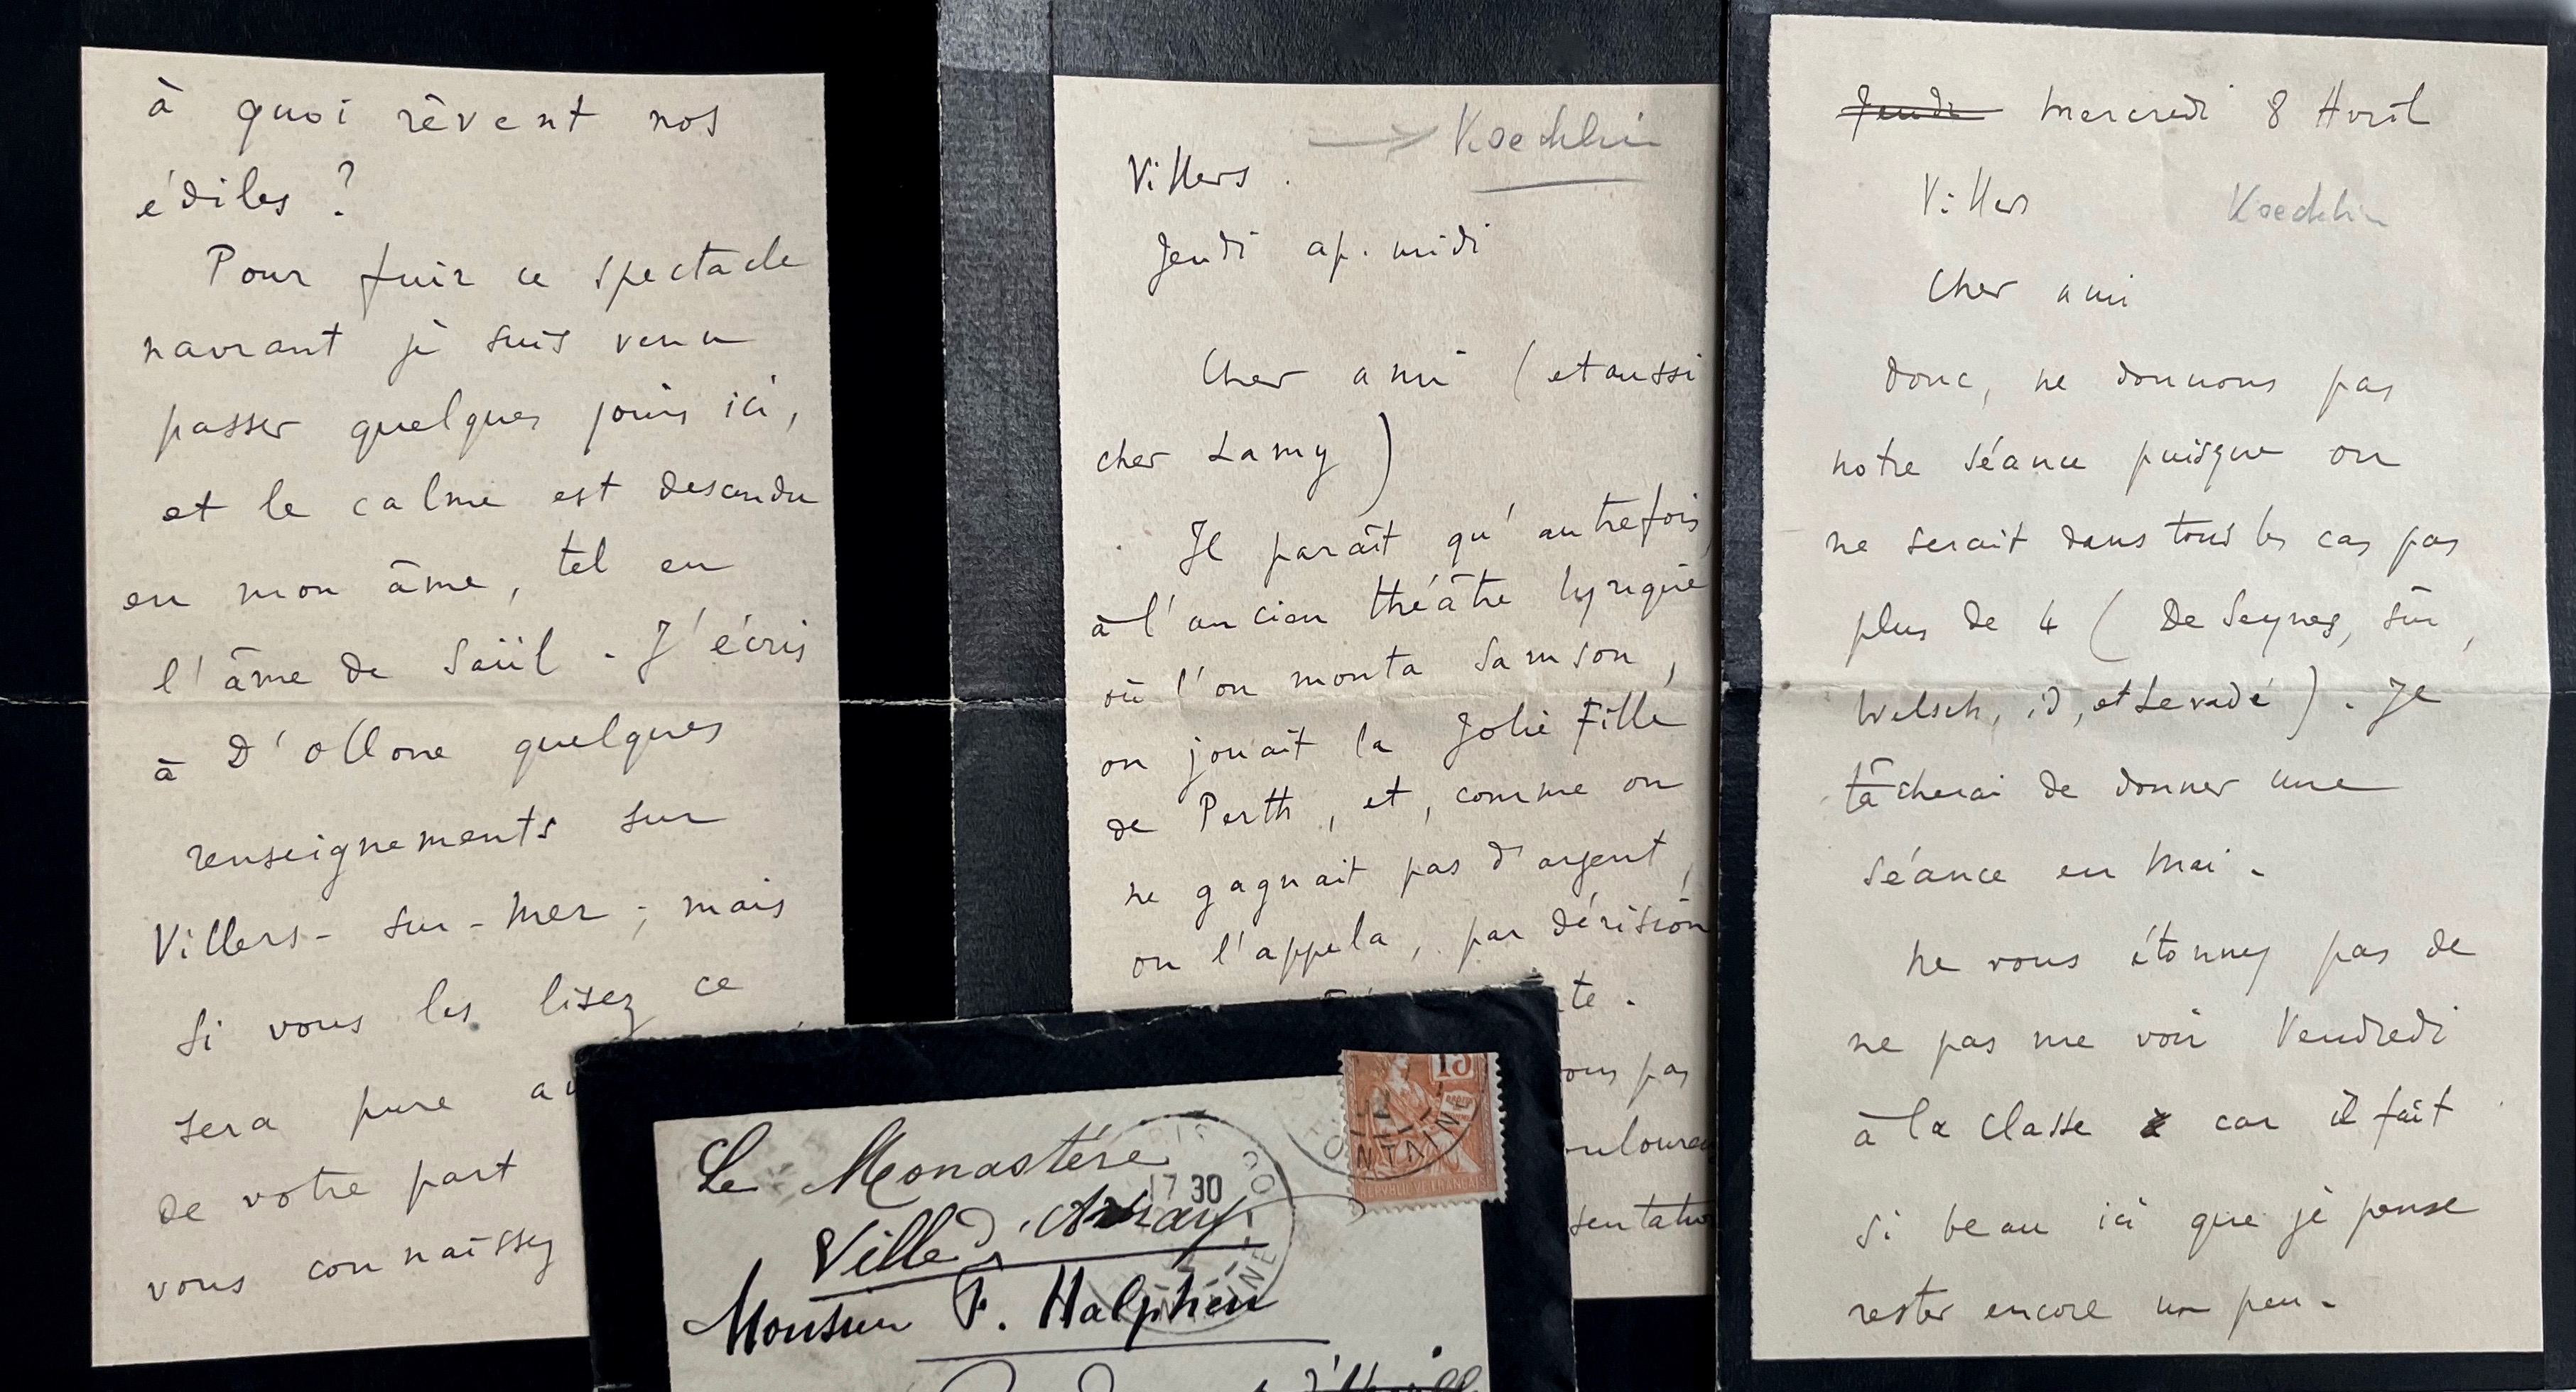 à quoi rêvent nos
édiles ?
Pour fuir ce spectacle
navrant je suis venu
passer quelques jours ici,
et le calme est descendu
en mon âme, tel en
l'âme de Saül. J'écris
à D'ollone quelques
renseignements sur
Villers-sur-Mer ; mais
si vous les lisez ce
sera pure
de votre part
vous connaissez
Koechlin
Villers.
Jeudi ap. midi
Cher ami (et aussi
cher Lamy)
Il paraît qu'autrefois,
à l'ancien théâtre lyrique
où l'on monta Samson,
on jouait la Jolie Fille
de Perth, et, comme on
ne gagnait pas d'argent,
on l'appela, par dérision
te.
pas
Le Monastère
Ville d'Avray
Monsieur F. Halphen
17 30
15
Jeudi Mercredi 8 Avril
Villers
Koechlin
Cher ami
donc, ne donnons pas
notre séance puisque on
ne serait dans tous les cas pas
plus de 4 (De Seynes, sûr,
Welsch, id, et Levadé). Je
tâcherai de donner une
séance en Mai.
Ne vous étonnez pas de
ne pas me voir Vendredi
à la classe car il fait
si beau ici que je pense
rester encore un peu.